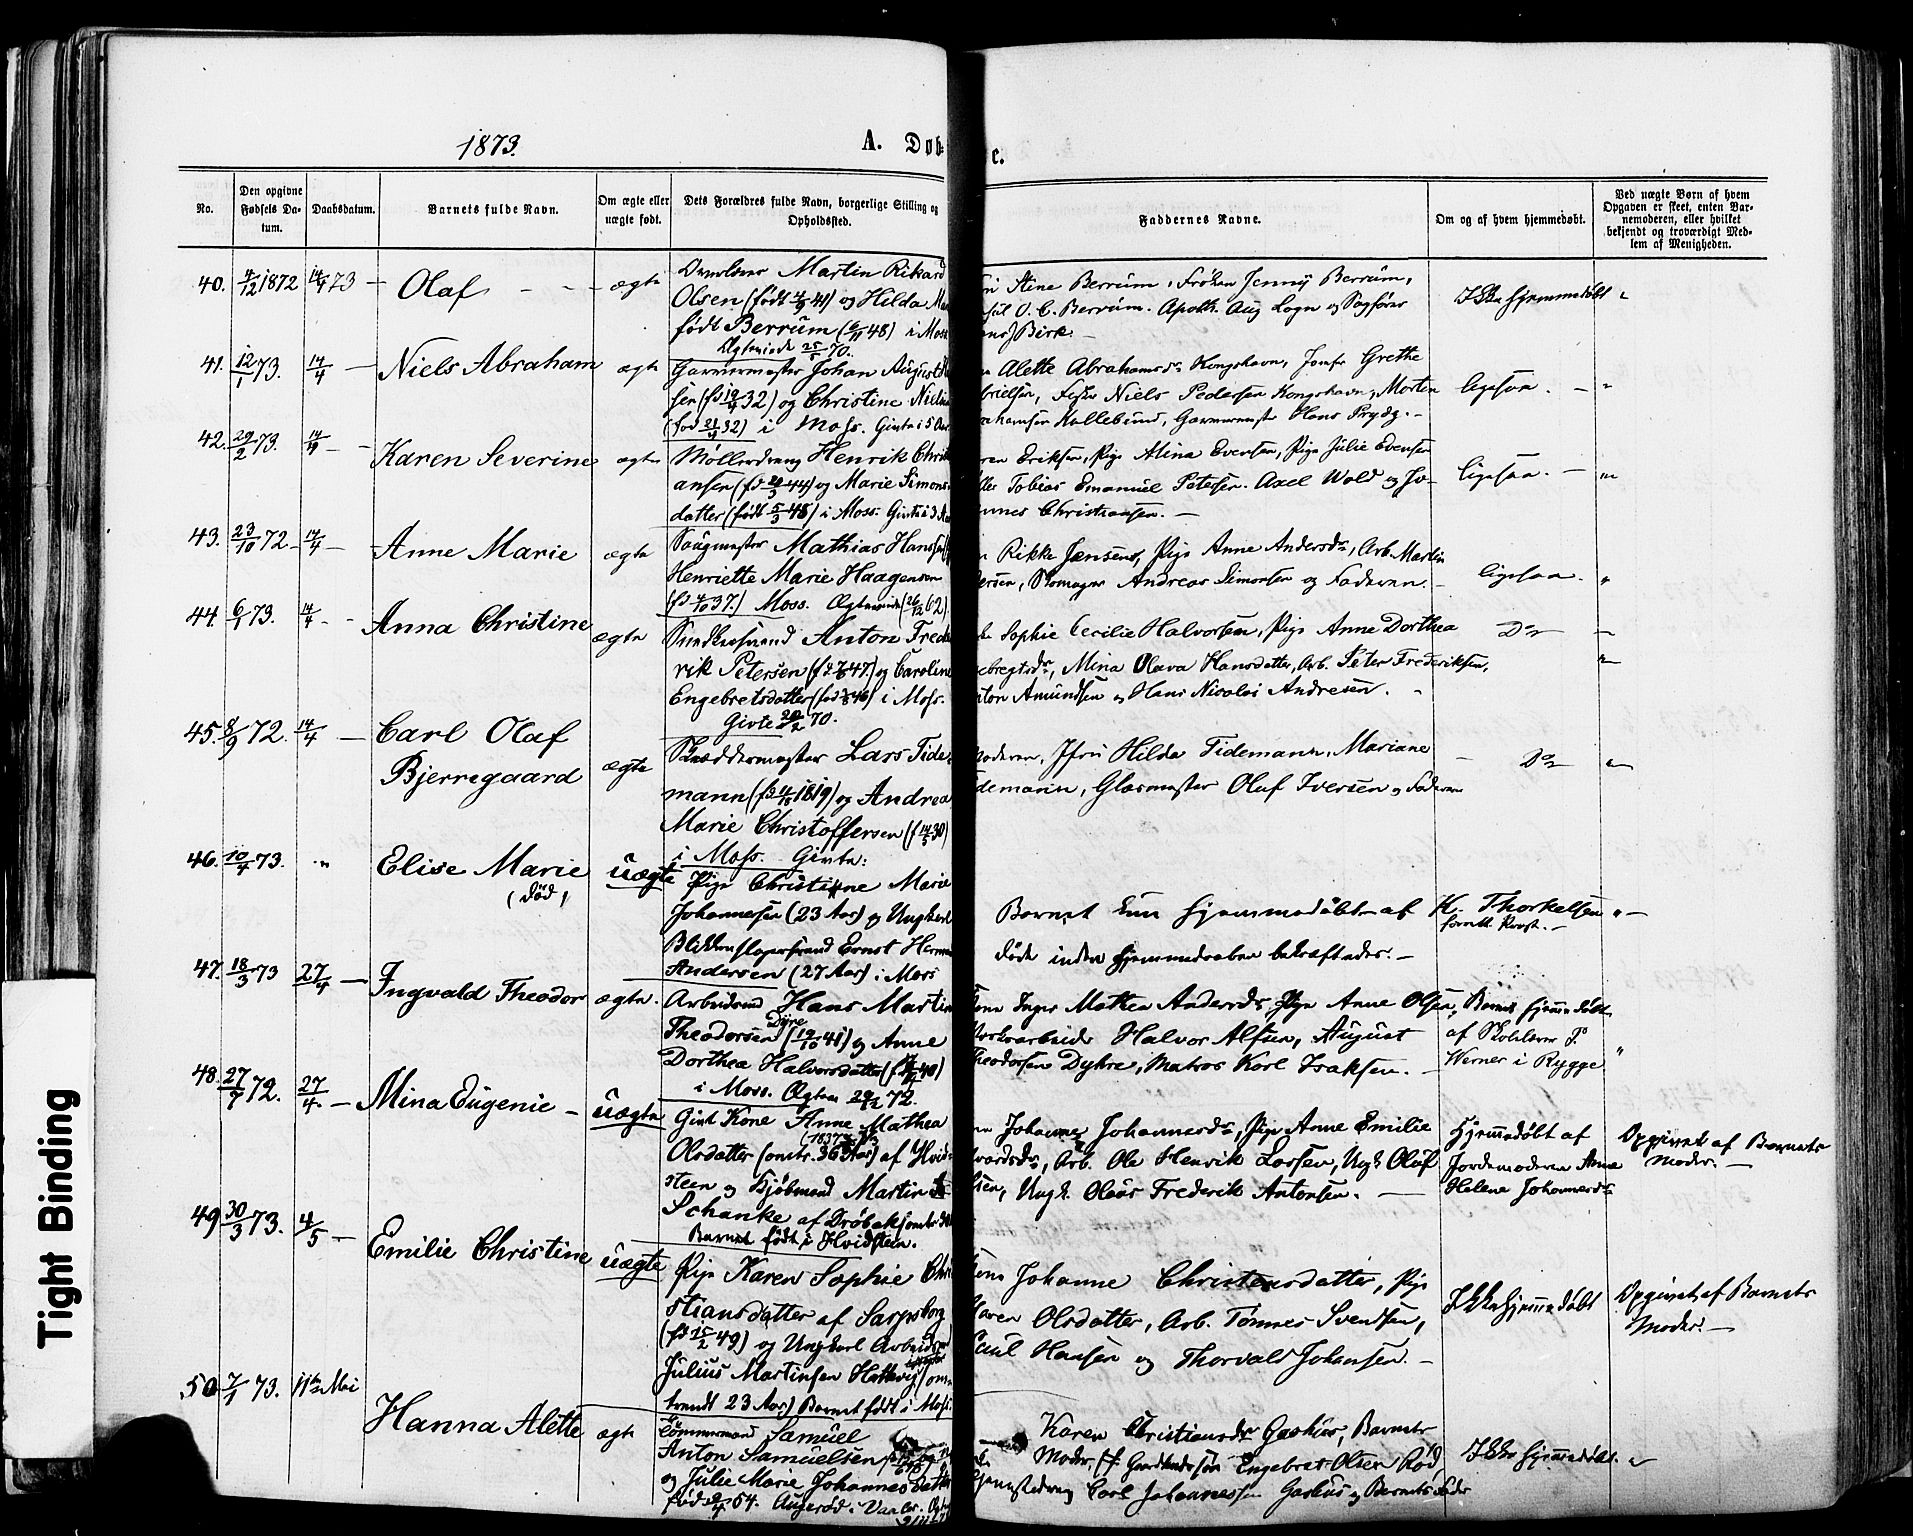 1873.
A. Døb-
e.
No.
Den opgivne Fødsels Da-tum.
Daabsdatum.
Barnets fulde Navn.
Om ægte eller uægte født.
Dets Forældres fulde Navn, borgerlige Stilling og Opholdssted.
Faddernes Navne.
Om og af hvem hjemmedøbt.
Ved uægte Børn af hvem
Opgaven er skeet, enten Bar-
nemoderen, eller hvilket
bekjendt og troværdigt Med-
lem af Menigheden.
40. 4/12 1872 14/4 73 — Olaf — ægte
Martin Rikard
Olsen (født 41) og Hilda
født Berrum (6/11 48) i Moss
Ægteviede 25/5 70.
Stine Berrum, Frøken Jenny Berrum,
O. C. Berrum. Apoth. Aug Logn og Sagfører
Birk. —
Ikke hjemmedøbt "
41. 12/1 73. 14/4 — Niels Abraham ægte
Garvermester Johan August
sen (fd 19/4 32) og Christine
(fød 21/4 32) i Moss. Givte i 5 Aar
Alette Abrahamsdr Kongshavn, Jomfr Grethe
brielsen, Fisker Niels Pedersen Kongshavn, Morten
rahamsen Kollebund, Garvermester Hans Prydz. —
ligesaa. — "
42. 29/2 73. 14/4 — Karen Severine ægte
Møllerdreng Henrik Chri
ansen (fd 44) og Marie Simons-
datter (født 5/3 48) i Moss: Givte i 3 Aar
ren Eriksen, Pige Alina Evensen, Pige Julie Evensen
ller Tobias Emanuel Petersen. Axel Wold og Jo-
annes Christiansen. —
ligesaa. — "
43. 23/10 72. 14/4 — Anne Marie ægte
Saugmester Mathias Hansen
Henriette Marie Haagensen
(fd 4/10 37.) Moss. Ægteviede (26/12 62)
Rikke Jensens, Pige Anne Andersdr, Arb. Martin
ersen, Skomager Andreas Simonsen og Faderen. —
ligesaa. "
44. 6/1 73. 14/4 — Anna Christine ægte
Snedkersvend Anton Frede
rik Petersen (fd 47) og Caroline
Engebretsdatter (fød 46) i Moss.
Givte 20/2 70.
Sophie Cecilie Halvorsen, Pige Anne Dorthea
ebregtsdr, Mina Olava Hansdatter, Arb. Peter Frederiksen,
ton Amundsen og Hans Nicolai Andresen.
Do — "
45. 8/9 72. 14/4 — Carl Olaf
Bjerregaard ægte
Skræddermester Lars Tide-
mann (fd 1819) og Andrea
Marie Christoffersen (f 14/5 30)
i Moss. Givte:
Moderen, Jfru Hilda Tidemann, Mariane
demann, Glasmester Olaf Iversen og Faderen
— Do "
46. 10/4 73. " Elise Marie
(død) uægte
Pige Christine Marie
Johannesen (23 Aar) og Ungkarl
Blikkenslagersvend Ernst Herman
Andersen (27 Aar) i Moss
Barnet kun hjemmedøbt af K. Thorkelsen
døde inden hjemmedaaben bekræftedes. —
47. 18/3 73 27/4 — Ingvald Theodor ægte.
Arbeidsmd Hans Martin
Dyre
Theodorsen (19/10 41) og Anne
Dorthea Halvorsdatter (40)
i Moss. Ægtev 29/12 72.
Kone Inger Mathea Andersdr, Pige Anne Olsen,
Halvor Alfsen, August
Theodorsen Dykre, Matros Karl Isaksen. —
Barnet hjemmedøbt
af Skolelærer P.
Werner i Rygge "
48. 27/7 72. 27/4 — Mina Eugenie — uægte
Givt Kone Anne Mathea
Olsdatter (omtr. 36 Aar) af Hvid-
steen og Kjøbmand Martin
Schanke af Drøbak
Barnet født i Hvidsteen.
Johanne Johannesdr, Pige Anne Emilie
vardsdr, Arb. Ole Henrik Larsen, Ungk Oluf
lsen, Ungk. Olaus Frederik Antonsen. —
Hjemmedøbt af
Jordemoderen Anne
Helene Johannesdr
Opgivet af Barnets
Moder. —
49 30/3 73. 4/5 — Emilie Christine uægte
Pige Karen Sophie Chri
stiansdatter af Sarpsborg
(fd 15/2 49) og Ungkarl Arbeider
Julius Martinsen Hattevig (om-
trendt 23 Aar) Barnet født i Moss.
Kone Johanne Christensdatter, Pige
Maren Olsdatter, Arb. Tønnes Svendsen,
Paul Hansen og Thorvald Johansen. —
Ikke hjemmedøbt
Opgivet af Barnets
Moder. —
50 7/1 73. 11te Mai Hanna Alette ægte
Tømmermand Samuel
Anton Samuelsen
og Julie Marie Johannesdatter
født 54. Augerød i Vaaler.
Karen Christiansdr Gashus, Barnets
Moder, Engebret Olsen Rød
Carl Johannessen Gashus og Barnets Fader
Ikke hjemmedøbt. "
Tight Binding